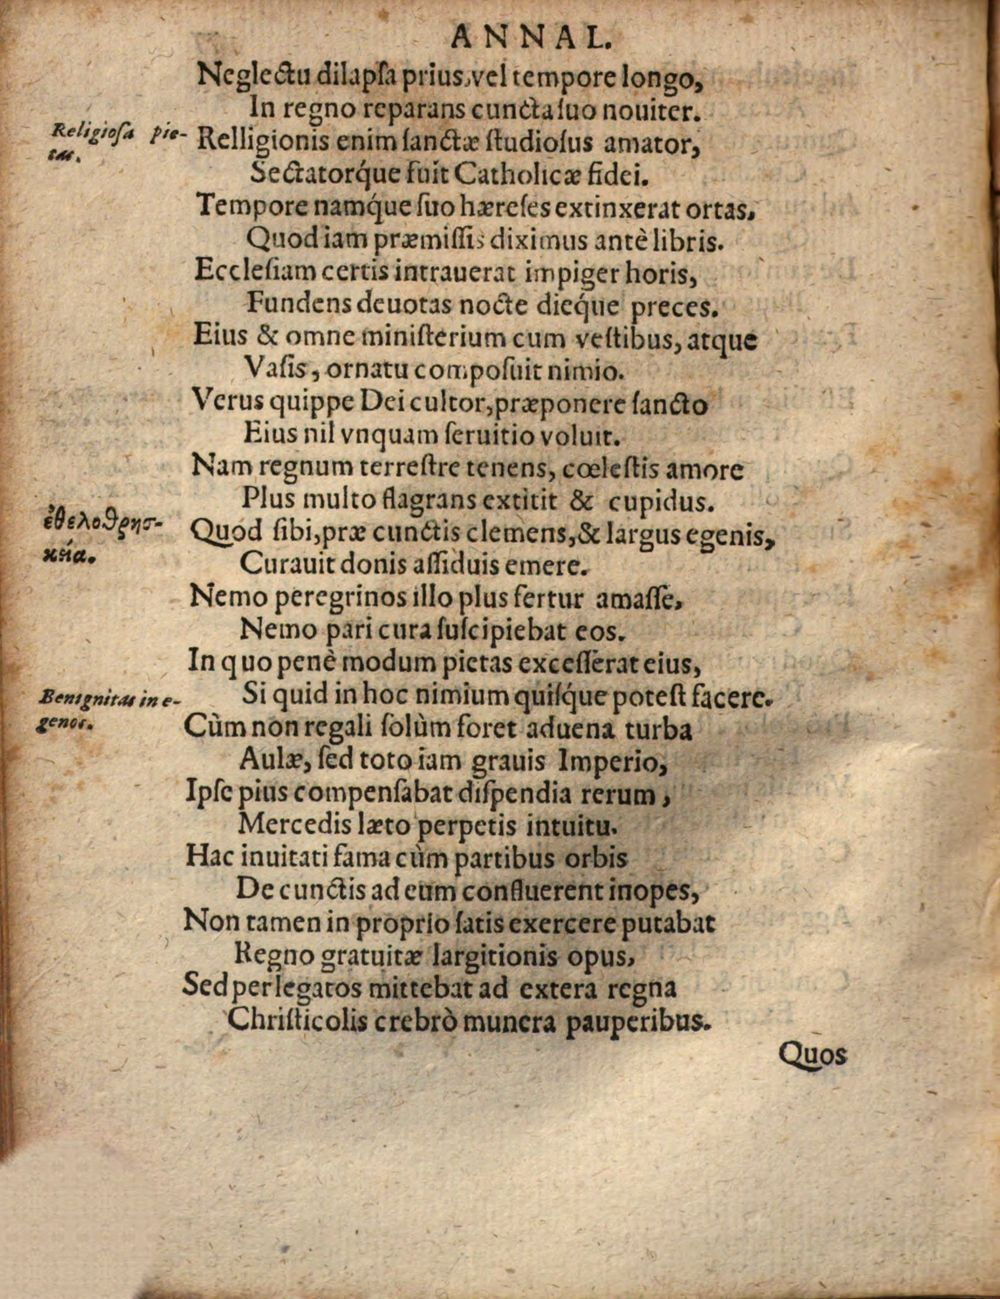 ANNAL.
Neglectu dilapſa prius, vel tempore longo,
In regno reparans cuncta ſuo nouiter.
Religioſa pie-
tas.
Relligionis enim ſanctæ ſtudioſus amator,
Sectatorq́ue fuit Catholicæ fidei.
Tempore namq́ue ſuo hæreſes extinxerat ortas,
Quod iam præmiſſis diximus antè libris.
Eccleſiam certis intrauerat impiger horis,
Fundens deuotas nocte dieq́ue preces.
Eius & omne miniſterium cum veſtibus, atque
Vaſis, ornatu compoſuit nimio.
Verus quippe Dei cultor, præponere ſancto
Eius nil vnquam ſeruitio voluit.
Nam regnum terreſtre tenens, cœleſtis amore
Plus multo flagrans extitit & cupidus.
ἐθελοθρησ-
κεία.
Quod ſibi, præ cunctis clemens, & largus egenis,
Curauit donis aſſiduis emere.
Nemo peregrinos illo plus fertur amaſſe,
Nemo pari cura ſuſcipiebat eos.
In quo penè modum pietas exceſſerat eius,
Benignitas in e-
genos.
Si quid in hoc nimium quiſq́ue poteſt facere.
Cùm non regali ſolùm foret aduena turba
Aulæ, ſed toto iam grauis Imperio,
Ipſe pius compenſabat diſpendia rerum,
Mercedis læto perpetis intuitu.
Hac inuitati fama cùm partibus orbis
De cunctis ad eum confluerent inopes,
Non tamen in proprio ſatis exercere putabat
Regno gratuitæ largitionis opus,
Sed per legatos mittebat ad extera regna
Chriſticolis crebrò munera pauperibus.
Quos